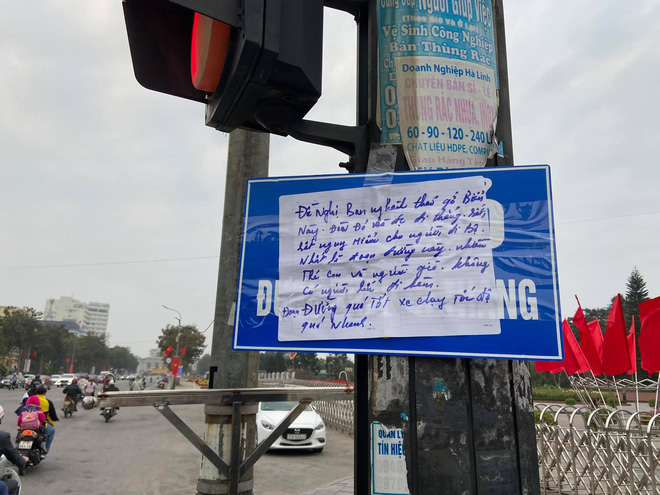 Người Giúp Việc
Vệ Sinh Công Nghiệp
Bán Thùng Rác
Doanh Nghiệp Hà Linh
CHUYÊN BÁN SỈ - LẺ
THÙNG RÁC NHỰA,
60 - 90 - 120 - 240 L
CHẤT LIỆU HDPE, COMPO
Giao Hàng Tận
Đề Nghị Ban nghành tháo gỡ Biển
Này. Đèn Đỏ vẫn đc đi thẳng. rất
rất nguy Hiểm cho người đi Bộ
Nhất là đoạn đường này. nhiều
Trẻ con và người già. không
có người lớn đi kèm.
Đoạn Đường quá Tốt xe chạy Tốc độ
quá nhanh.
QUẢN LÝ
TÍN HIỆU